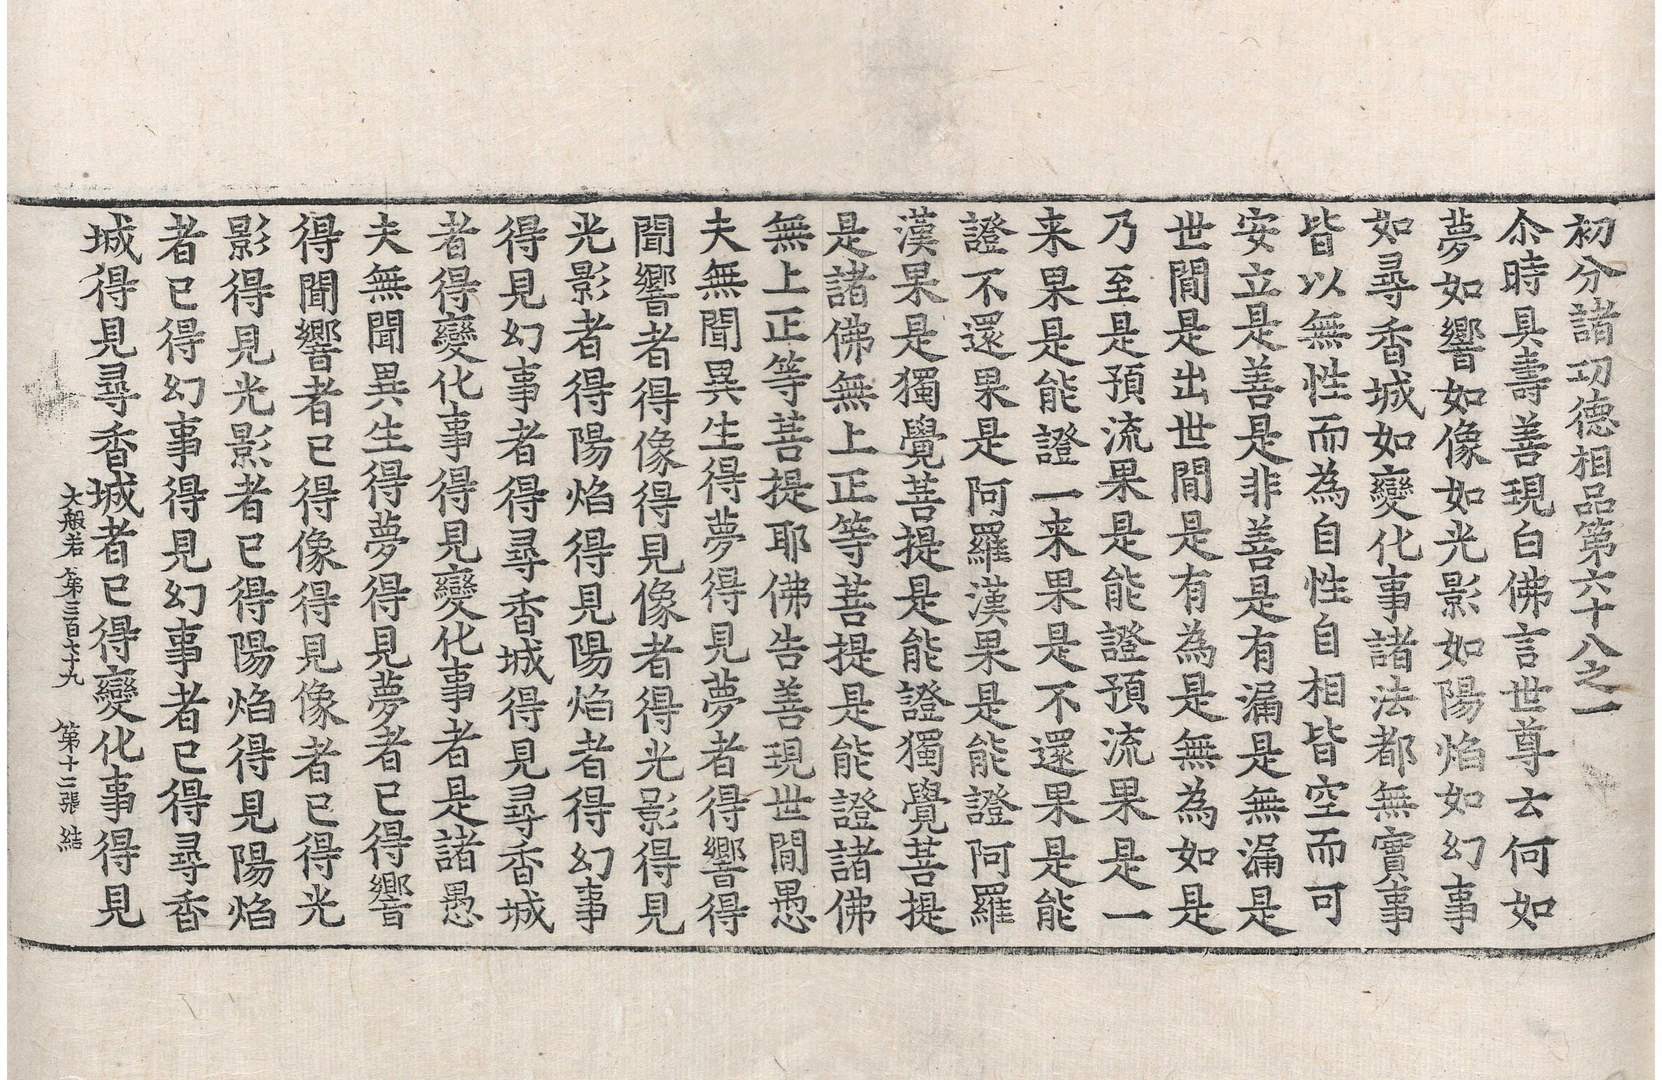 初分諸功德相品第六十八之一
尒時具壽善現白佛言世尊云何如
夢如響如像如光影如陽焰如幻事
如尋香城如變化事諸法都無實事
皆以無性而為自性自相皆空而可
安立是善是非善是有漏是無漏是
世閒是出世閒是有為是無為如是
乃至是預流果是能證預流果是一
来果是能證一来果是不還果是能
證不還果是阿羅漢果是能證阿羅
漢果是獨覺菩提是能證獨覺菩提
是諸佛無上正等菩提是能證諸佛
無上正等菩提耶佛告善現世閒愚
夫無聞異生得夢得見夢者得響得
聞響者得像得見像者得光影得見
光影者得陽焰得見陽焰者得幻事
得見幻事者得尋香城得見尋香城
者得變化事得見變化事者是諸愚
夫無聞異生得夢得見夢者已得響
得聞響者已得像得見像者已得光
影得見光影者已得陽焰得見陽焰
者已得幻事得見幻事者已得尋香
城得見尋香城者已得變化事得見
大般若第三百七十九 第十二張 結